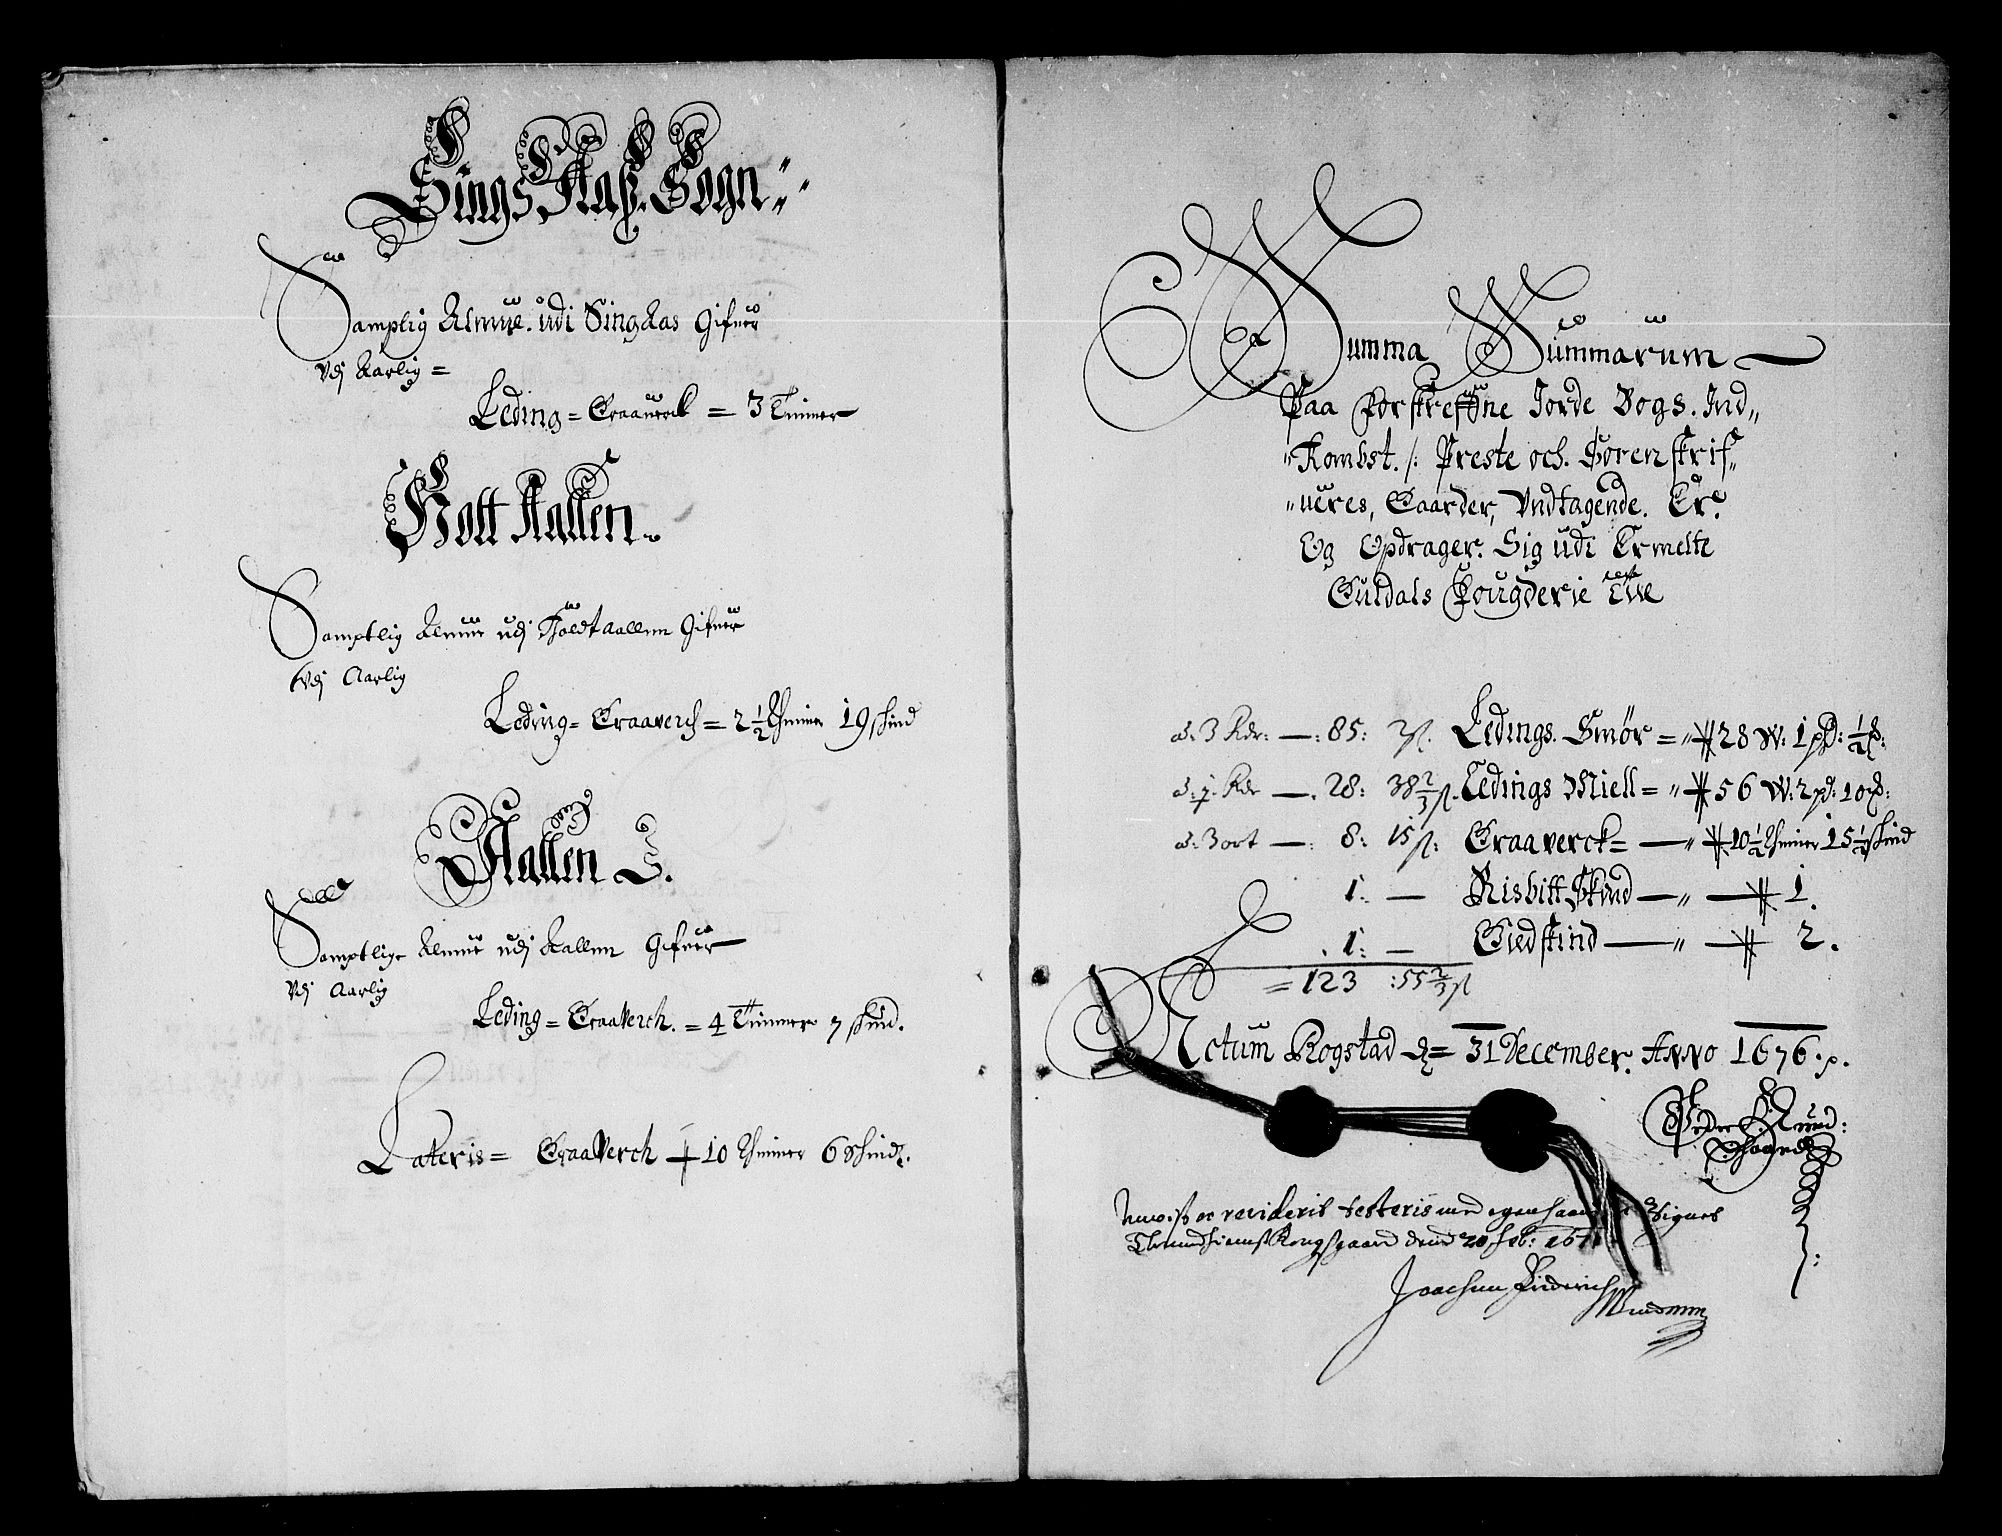 Sings Aaß. Sogn
Samptlig Almue. udi Singsaas Gifuer
Vdj Aarlig =
Leding = Graauerck = 3 Timmer
Holt Aallen.
Samptlig Almue udj Holdtaallen Gifuer
Vdj Aarlig
Leding = Graaverch = 2 1/2 Thimmer 19 skind
Aallen S.
Samptlige Almue udj Aallen Gifuer
Vdj Aarlig
Leding = Graaverch. = 4 Timmer 7 skind.
Lateris = Graaverch 10 Thimmer 6 Skind.
Summa Summarum
Paa Forskreffne Jorde Bogs. Ind„
„Kombst. /: Preste och. Sorenskrif„
„ueres, Gaarder, Vndtagende. Er:
Og Opdrager. Sig udi Ermelte
Guldals Fougderie
a. 3 Rdr: —: 85: Ledings. Smør = „ 28 W: 1 pd: 1/2
Rdr —. 28: 38 2/3 ß. Ledings Miell = „ 56 W: 2 pd: 10
a. 3 ort —: 8: 15 ß: Graaverck = — „ 10 1/2 Thimmer 15 1/2 skind
1: — Risbitt Skind — „ — 1.
1: — Giedskind — „ — 2.
= 123 : 55 2/3 ß
Actum Rogstad d = 31 December. Anno 1676.
Peder
reuiderit testeris med egen haand
Trundhiems Kongsgaard denn 20 Feb: 167
Joachim Friderich